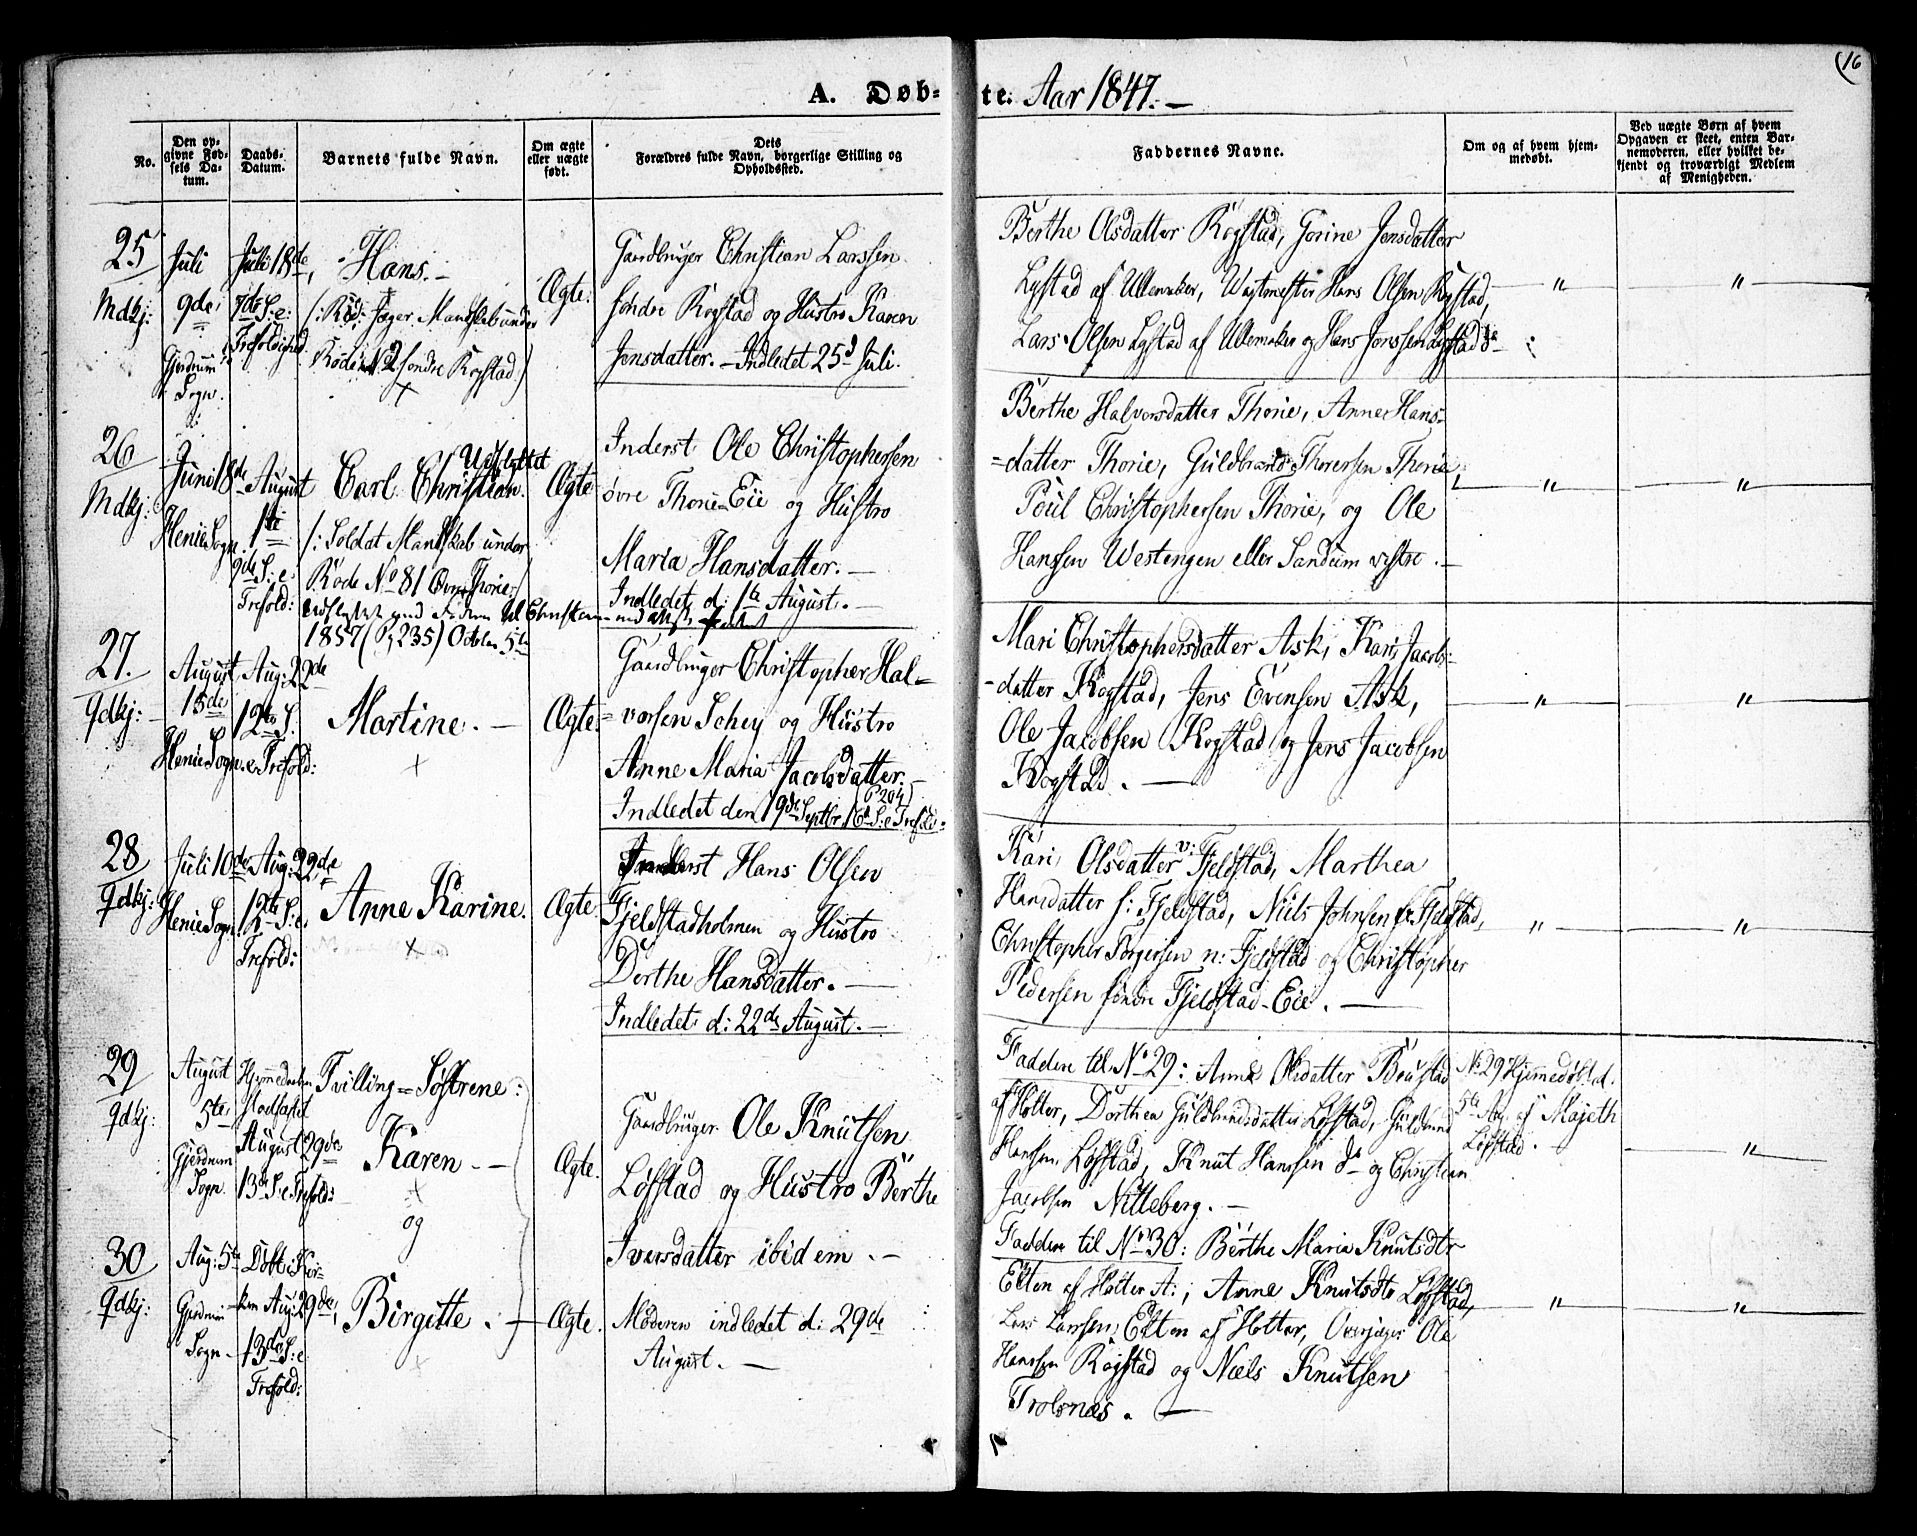 16
A. Døb-te. Aar 1847. —
No.
Den op-
givne Fød-
sels Da-
tum.
Daabs-
Datum.
Barnets fulde Navn.
Om ægte
eller uægte
født.
Dets
Forældres fulde Navn, borgerlige Stilling og
Opholdssted.
Faddernes Navne.
Om og af hvem hjem-
medøbt.
Ved uægte Børn af hvem
Opgaven er skeet, enten Bar-
nemoderen, eller hvilket be-
kjendt og troværdigt Medlem
af Menigheden.
25
Mdkj:
Juli
9de
Gjerdrum
Sogn.
Juli 18de,
7de S: e:
Trefoldighed.
Hans. —
/: Rød: Jæger Mandskab under
Rode No 2 søndre Kogstad:/
+
Ægte:
Gaardbruger Christian Larssen
søndre Kogstad og Hustro Karen
Jensdatter. — Indledet 25d Juli.
Berthe Olsdatter Kogstad, Gorine Jensdatter
Lystad af Ullensaker, Vagtmester Hans Olsen Kogstad,
Lars Olsen Lystad af Ullensaker og Hans Jonssen Kogstad
"
"
26
Mdkj:
Juni 18de
Henie Sogn.
August
1ste
9de S: e:
Trefold:
Udflyttet
Carl Christian.
/: Soldat Mandskab under
Rode No 81 Øvre Thorie:/
Udflyttet med Faderen til Christian
1857 (P. 235) October 5te
Ægte
Inderst Ole Christophersen
øvre Thorie-Eie og Hustro
Maria Hansdatter. —
Indledet d: 1ste August. —
Berthe Halvorsdatter Thorie, Anne Hans-
=datter Thorie, Guldbrand Thoresen Thorie,
Poul Christophersen Thorie, og Ole
Hanssen Westengen eller Sandum vestre. —
"
"
27.
Qdkj:
August
15de
Henie Sogn.
Aug: 22de
12te S.
e. Trefold:
Martine. —
+
Ægte
Gaardbruger Christopher Hal-
=vorsen Schey og Hustro
Anne Maria Jacobsdatter. —
(P 204)
Indledet den 19de Septbr. 16d S: e Trefold:
Mari Christophersdatter Ask, Kari Jacobs-
-datter Kogstad, Jens Evensen Ask,
Ole Jacobsen Kogstad og Jens Jacobsen
Kogstad. —
"
"
28
Qdkj:
Juli 10de
Henie Sogn
Aug: 22de,
12te S: e.
Trefold:
Anne Karine.
+
Ægte
Inderst Hans Olsen
Fjeldstadholmen og Hustro
Dorthe Hansdatter. —
Indledet d: 22de August. —
Kari Olsdatter v: Fjeldstad, Marthea
Hansdatter s: Fjeldstad, Niels Johnsen Fjeldstad,
Christopher Torgersen n: Fjeldstad og Christopher
Pedersen søndre Fjeldstad-Eie. —
"
"
29
Qdkj:
August
5te
Gjerdrum
Sogn.
Hjemmedaaben
stadfæstet
August 29de
13de S: e Trefold:
Tvilling=Søstrene:
Karen —
+
og
Ægte.
Gaardbruger Ole Knutsen
Løfstad og Hustro Berthe
Iversdatter ibidem. —
Faddere til No 29: Anne Olsdatter
af Holter, Dorthea Guldbrandsdatter Løfstad, Guldbrand
Hanssen Løfstad, Knut Hanssen do og Christian
Jacobsen Nitteberg. —
No 29 Hjemmedøbt d.
5te Aug. af
Løfstad.
"
30
Qdkj:
Aug: 5te
Gjerdrum
Sogn.
Døbt i Kir-
ken Aug: 29de,
13de S: e
Trefold:
Birgitte. —
+
Ægte.
Moderen indledet d: 29de
August. —
Faddere til No 30: Berthe Maria Knutsdtr
Elten af Holter A:, Anne Knutsdtr Løfstad,
Lars Larssen, Elten af Holter, Overjæger Ole
Hanssen Kogstad og Niels Knutsen
Trolsnæs. —
"
"